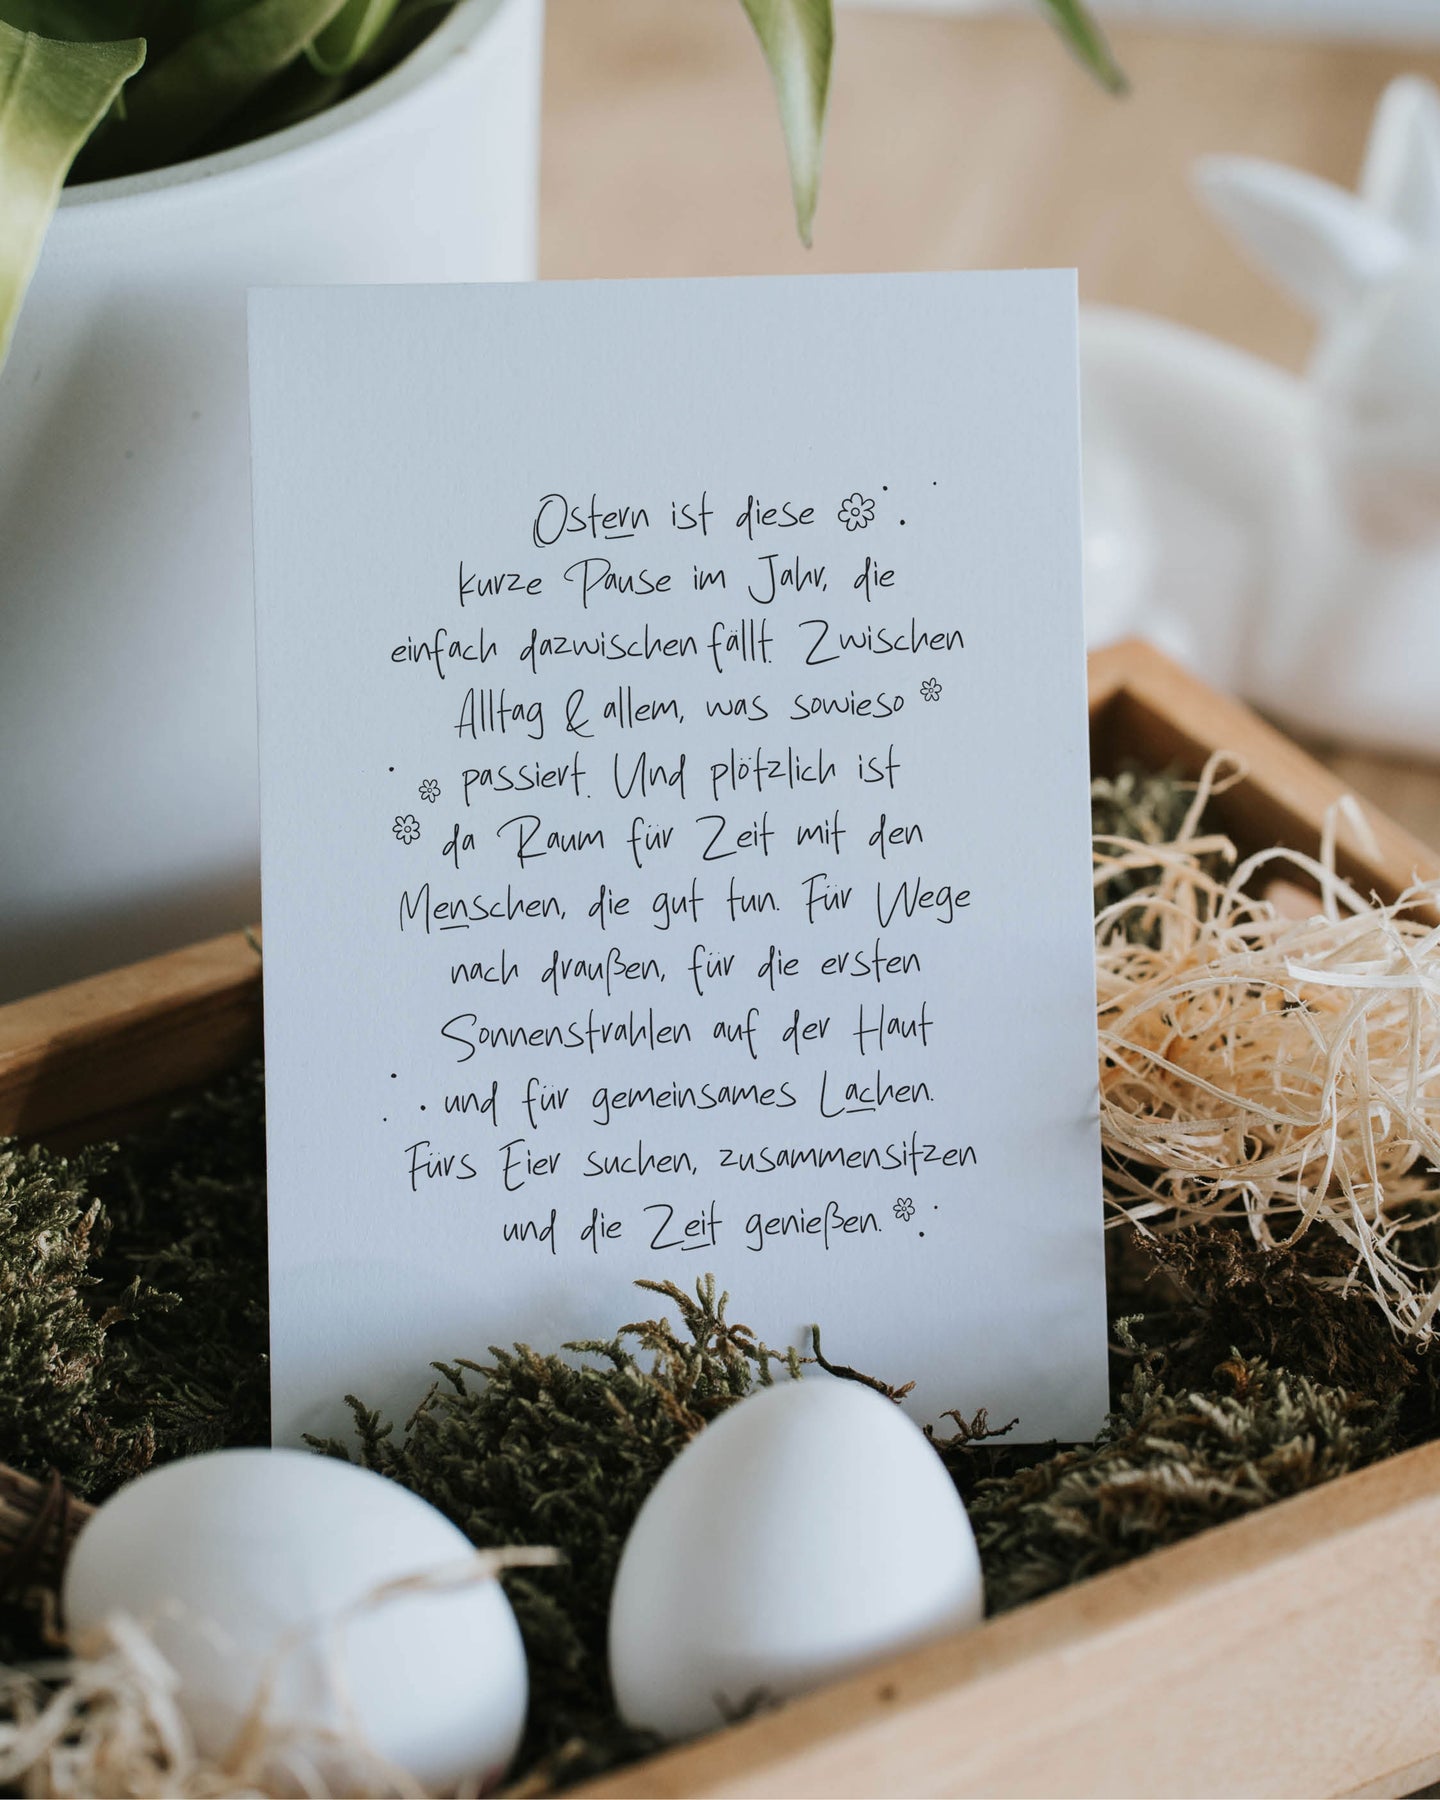 Ostern ist diese
kurze Pause im Jahr, die
einfach dazwischen fällt. Zwischen
Alltag & allem, was sowieso
passiert. Und plötzlich ist
da Raum für Zeit mit den
Menschen, die gut tun. Für Wege
nach draußen, für die ersten
Sonnenstrahlen auf der Haut
und für gemeinsames Lachen.
Fürs Eier suchen, zusammensitzen
und die Zeit genießen.